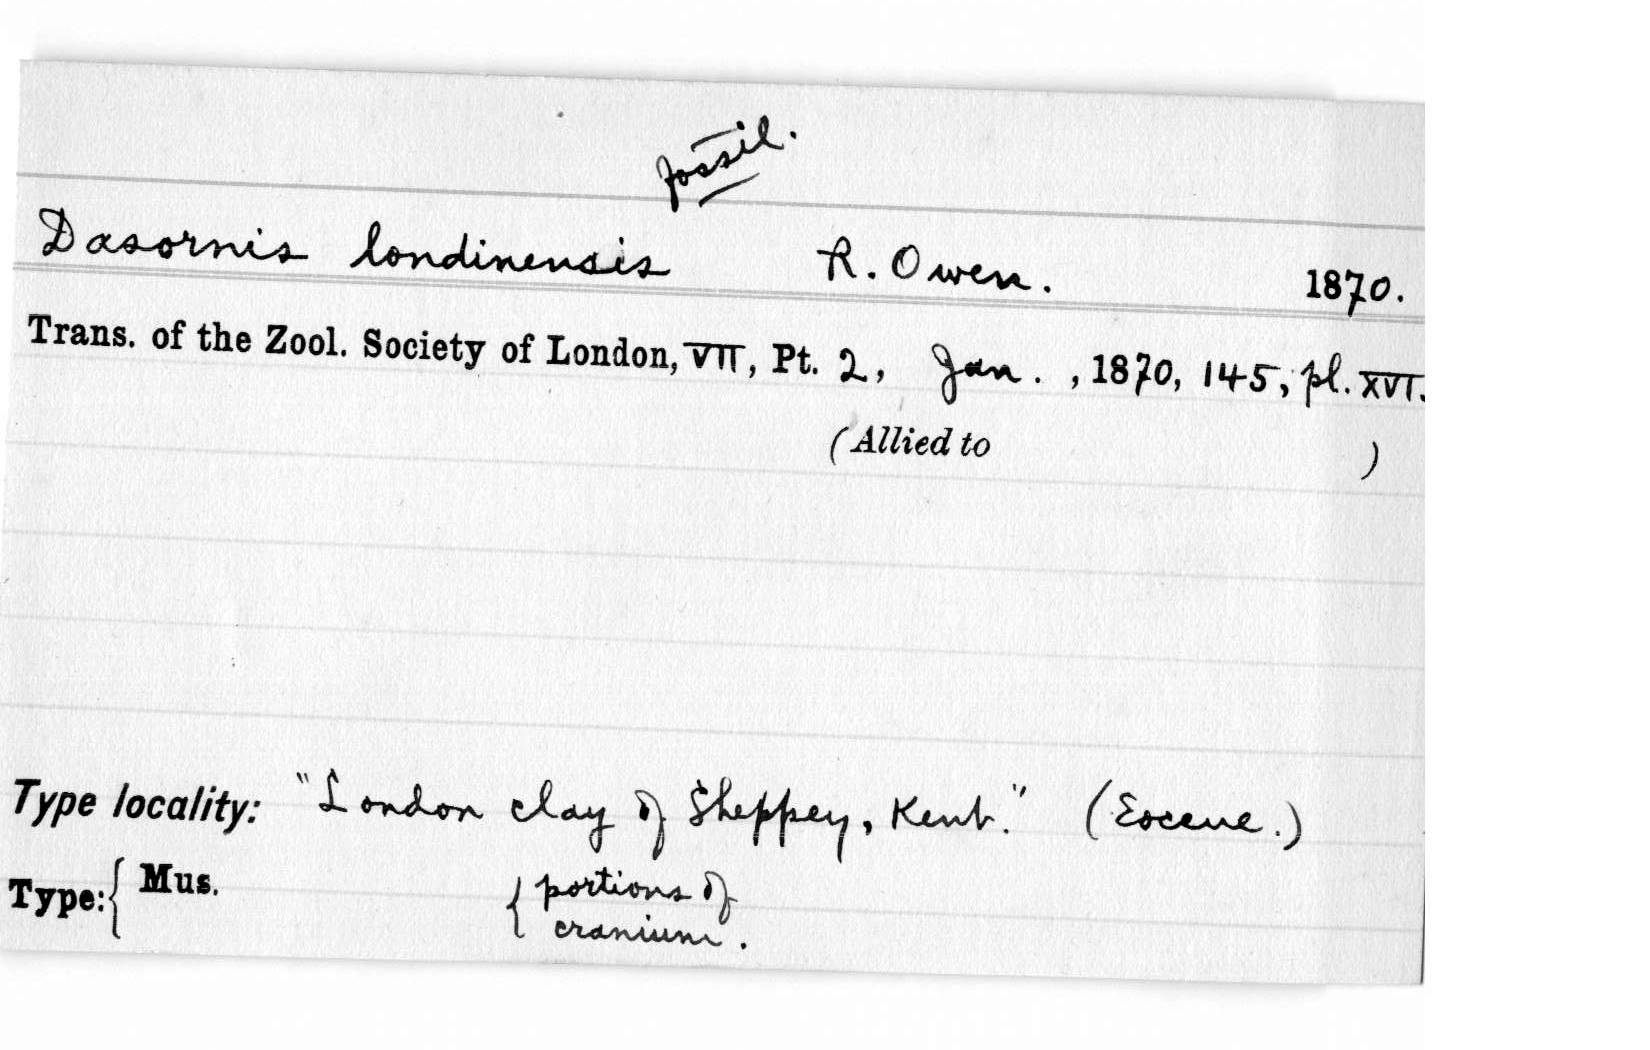 fossil.
Dasornis londinensis R. Owen. 1870.
Trans. of the Zool. Society of London, VII, Pt. 2, Jan. , 1870, 145, pl. XVI.
(Allied to )
Type locality: "London clay of Sheppey, Kent." (Eocene.)
Type: { Mus. { portions of
cranium.